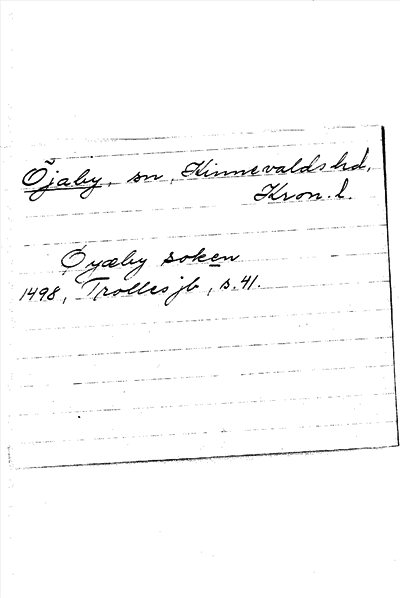 Öjaby, sn, Kinnevalds hd,
Kron. l.
Øyæby soken
1498, Trolles jb, s. 41.